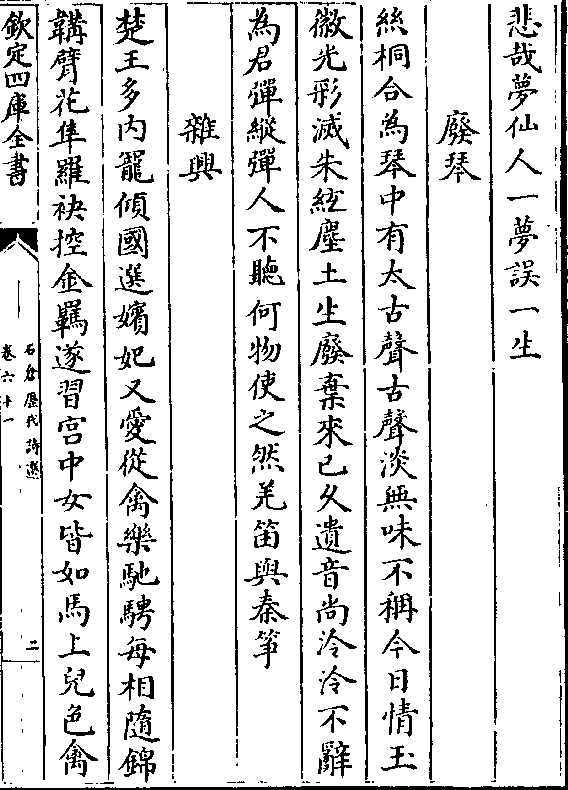 悲哉夢仙人一夢誤一生
廢琴
絲桐合為琴中有太古聲古聲淡無味不稱今日情玉
徽光彩滅朱絃塵土生廢棄來已久遺音尚泠泠不辭
為君彈縱彈人不聽何物使之然羌笛與秦箏
雜興
楚王多內寵傾國選嬪妃又愛從禽樂馳騁每相隨錦
韝臂花隼羅袂控金羈遂習宫中女皆如馬上兒色禽
欽定四庫全書
石倉歷代詩選
卷六十一
二